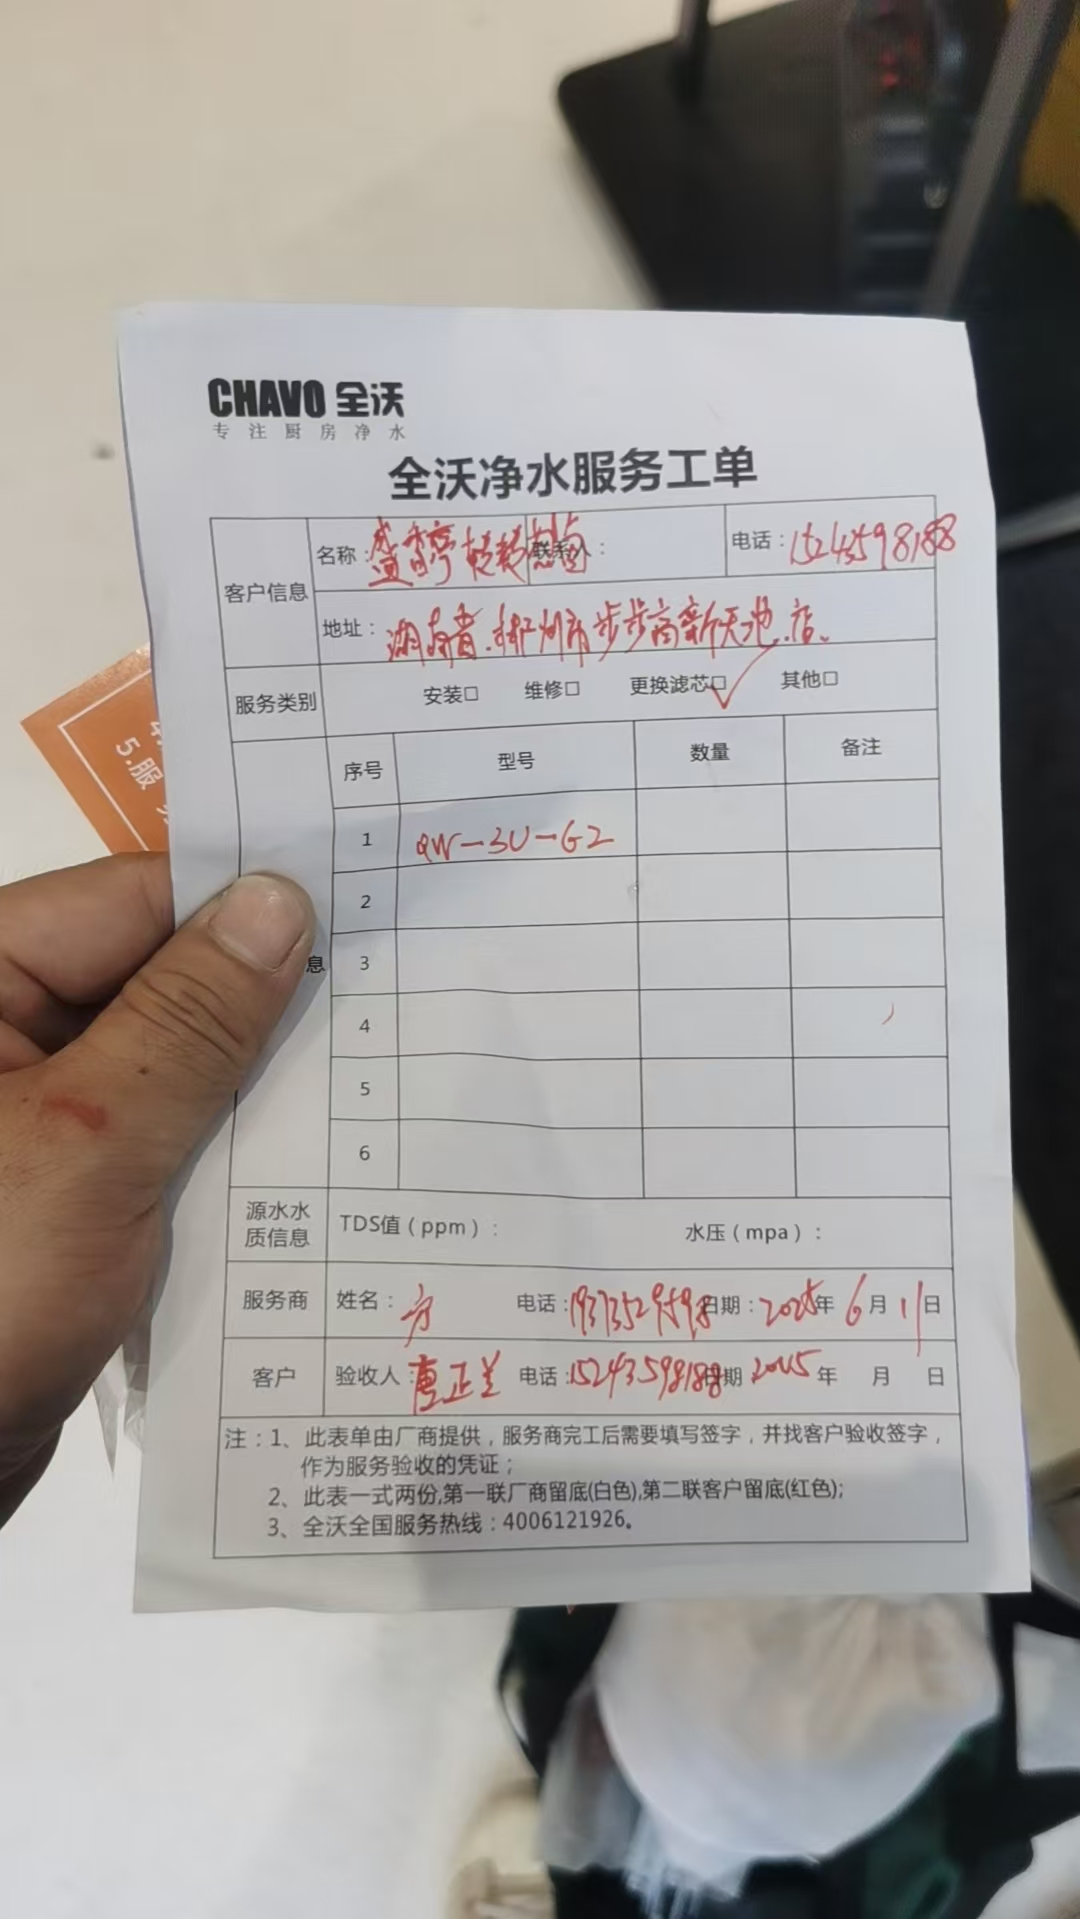 CHAVO 全沃
专注厨房净水
全沃净水服务工单
客户信息
名称：盛香亭 联系人： 电话：15243598188
地址：湖南省.郴州市步步高新天地.店.
服务类别 安装□ 维修□ 更换滤芯□✓ 其他□
序号 型号 数量 备注
息
1 QW-3U-G2
2
3
4
5
6
源水水质信息 TDS值（ppm）： 水压（mpa）：
服务商 姓名：方 电话：19373529598 日期：2025年6月11日
客户 验收人：唐正兰 电话：15243598188 日期 2025年 月 日
注：1、此表单由厂商提供，服务商完工后需要填写签字，并找客户验收签字，
作为服务验收的凭证；
2、此表一式两份,第一联厂商留底(白色),第二联客户留底(红色);
3、全沃全国服务热线：4006121926。
5.服